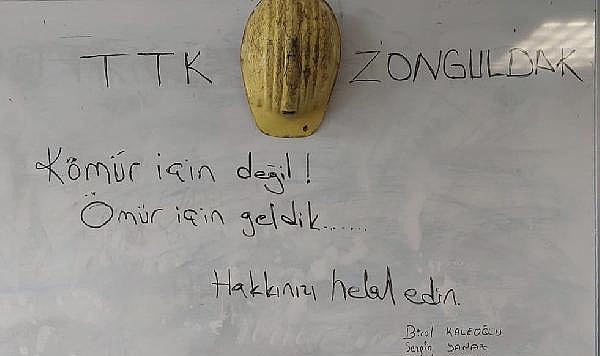 TTK ZONGULDAK
Kömür için değil!
Ömür için geldik.......
Hakkınızı helal edin.
Birol KALEOĞLU
Serpin